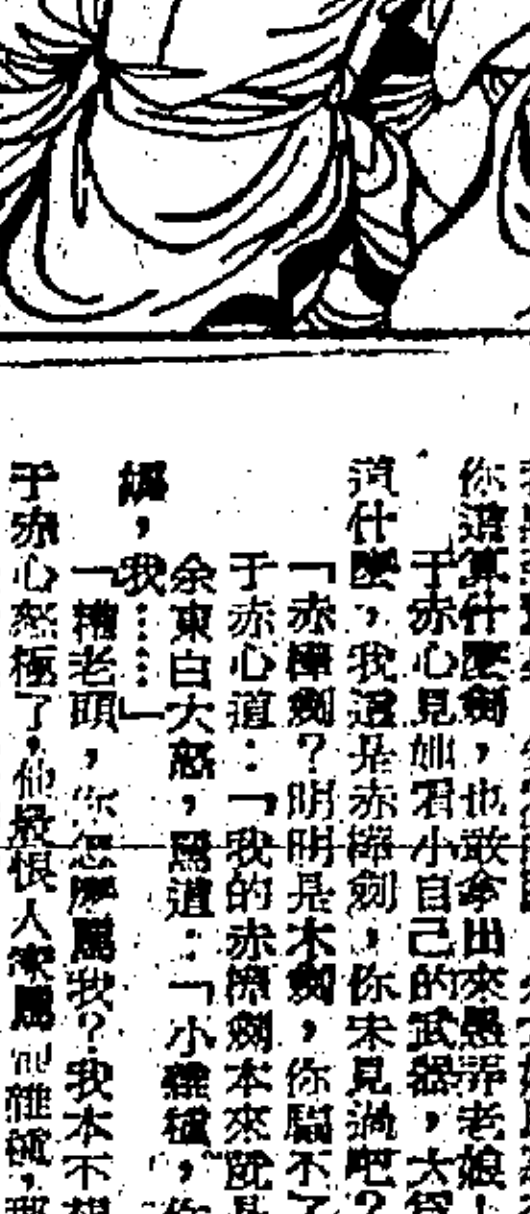 你這算什麼劍，也敢拿出來愚弄老娘！
于赤心見她看小自己的武器，大
道什麼，我這是赤檀劍，你未見過吧？
「赤檀劍？明明是木劍，你騙不了
于赤心道：「我的赤檀劍本來就是
余東白大怒，罵道：「小雜種，你
，我……」
「糟老頭，你怎麼罵我？我本不想
于赤心怒極了，他最恨人家罵他雜種，那